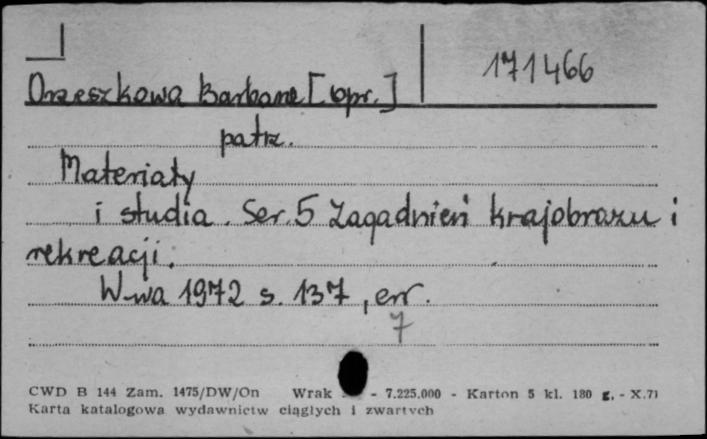 171466
Orzeszkowa Barbara [opr.]
patrz.
Materiały
i studia. Ser. 5 Zagadnień krajobrazu i
rekreacji.
W-wa 1972 s. 137, err.
7
CWD B 144 Zam. 1475/DW/On Wrak - 7.225.000 - Karton 5 kl. 180 g. - X.71
Karta katalogowa wydawnictw ciągłych i zwartych